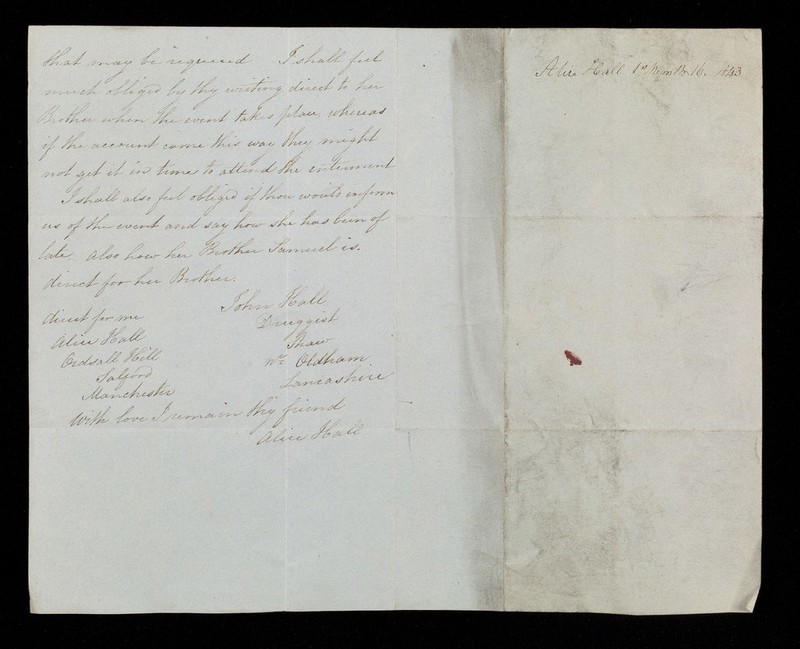 that may be required I shall feel
much obliged by thy writing direct to her
Brother when the event takes place, whereas
if the account came this way they might
not get it in time to attend the interment
I shall also feel obliged if thou would inform
us of the event and say how she has been of
late. also how her Brother Samuel is.
direct for her Brother.
John Hall
Druggist
Shaw
Nr Oldham
Lancashire
direct for me
Alice Hall
Ordsall Hill
Salford
Manchester
With love I remain thy friend
Alice Hall
Alice Hall 1st Month 16. 1843